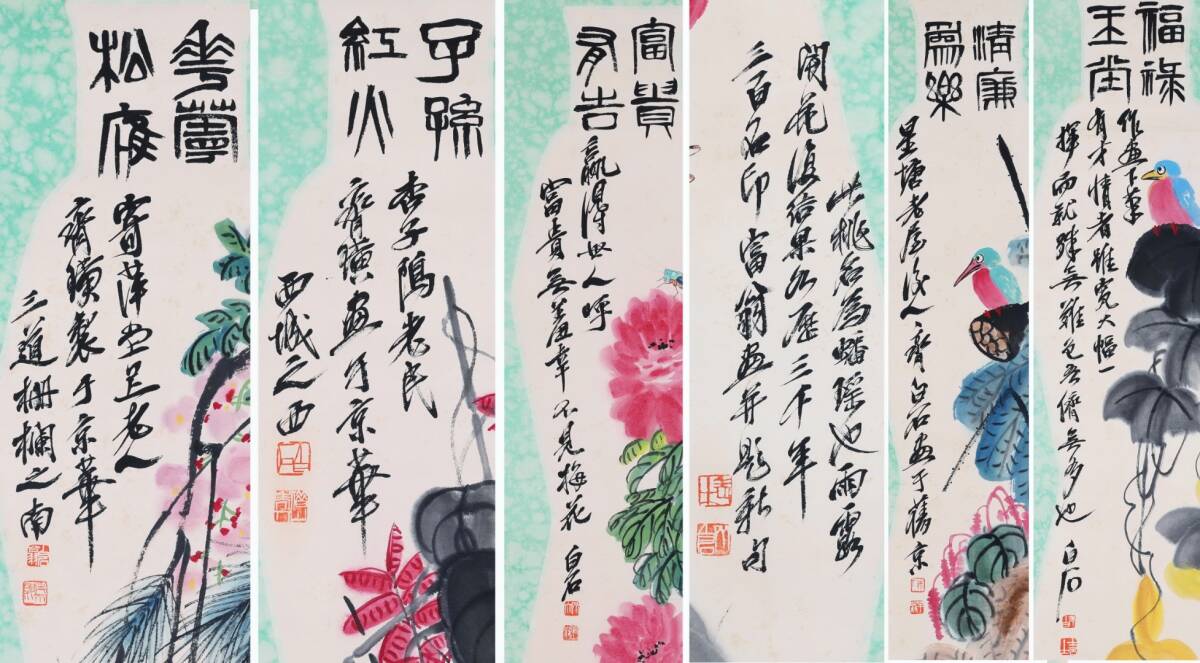 華萼
松
寄萍堂上老人
齊璜製于京華
三道柵欄之南
子孫
紅火
杏子隖老民
齊璜畫于京華
西城之西
富貴
有吉
贏得世人呼
富貴無羞幸不見梅花 白石
此桃名為蟠瑤池雨露
開花後結果必歷三千年
三百石印富翁畫并題新句
清廉
為樂
星塘老屋後人齊白石畫于舊京
福祿
玉堂
作畫下筆
有才情者雖寬大幅一
揮而就殊無難色吾儕無多也 白石